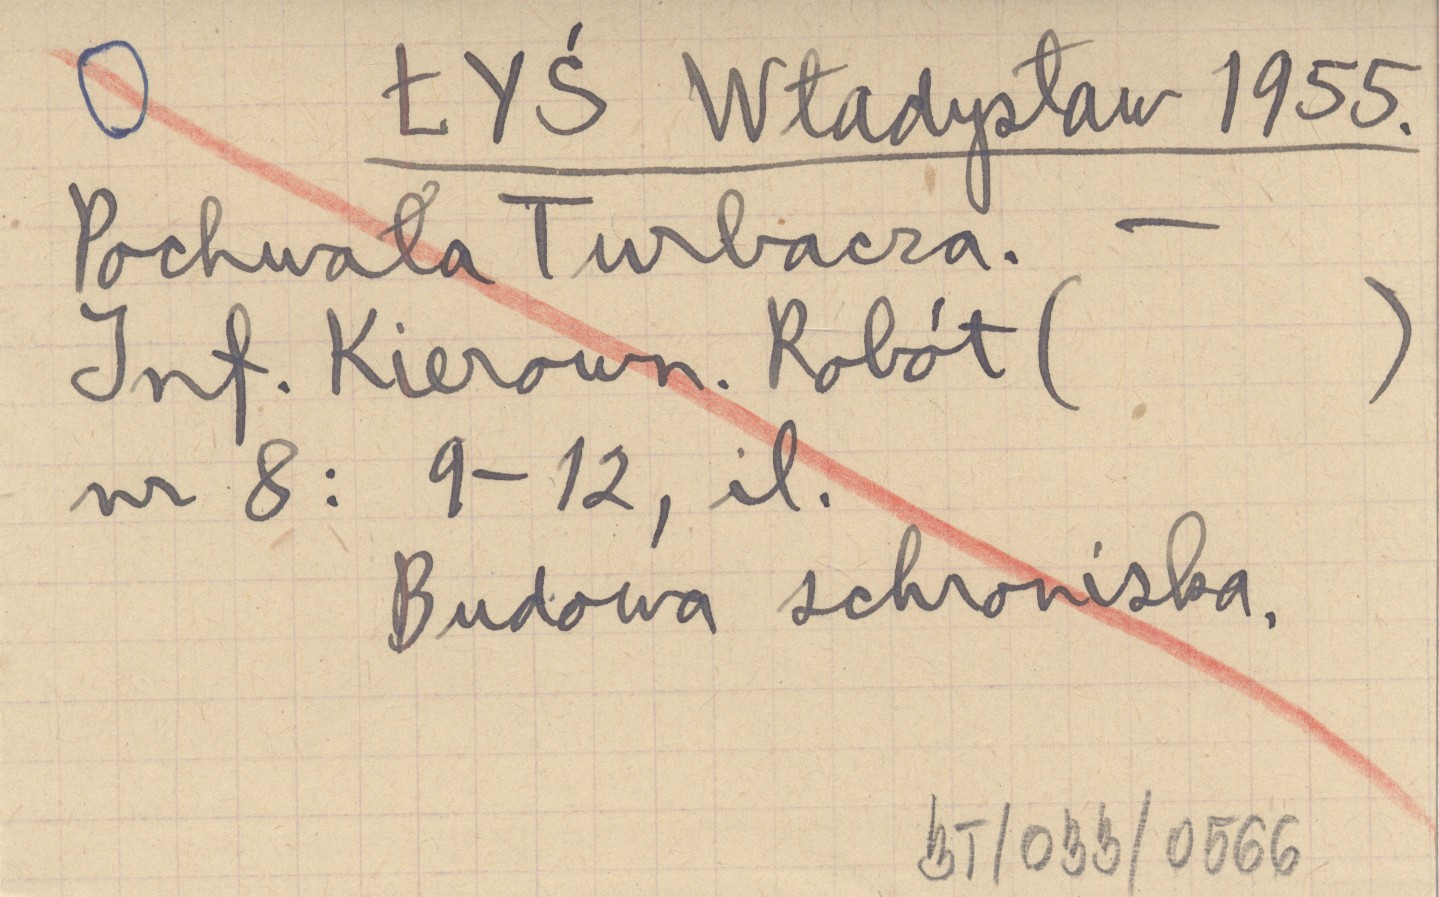 ŁYŚ Władysław 1955.
Pochwała Turbacza. —
Inf. Kierown. Robót ( )
nr 8: 9-12, il.
Budowa schroniska.
/033/0566